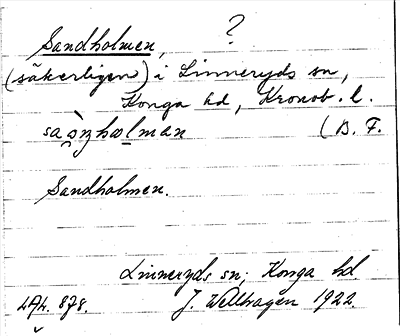 ?
Sandholmen,
(säkerligen) i Linneryds sn,
Konga hd, Kronob. l.
(D. F.
Sandholmen.
Linneryds sn, Konga hd
LAL. 878. J. Wellhagen 1922.